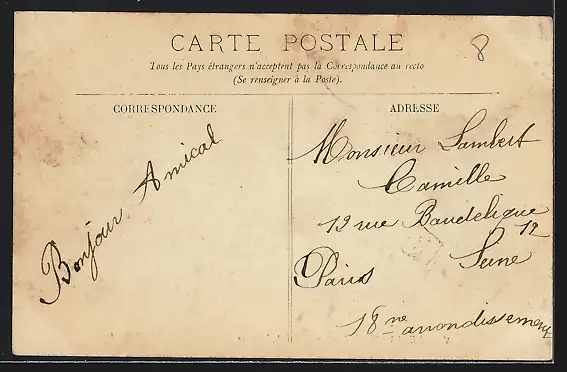 8
CARTE POSTALE
Tous les Pays étrangers n'acceptent pas la Correspondance au recto
(Se renseigner à la Poste).
CORRESPONDANCE
ADRESSE
Bonjour Amical
Monsieur Lambert
Camille
12 rue Baudelique
12
Paris Seine
18 me arrondissement